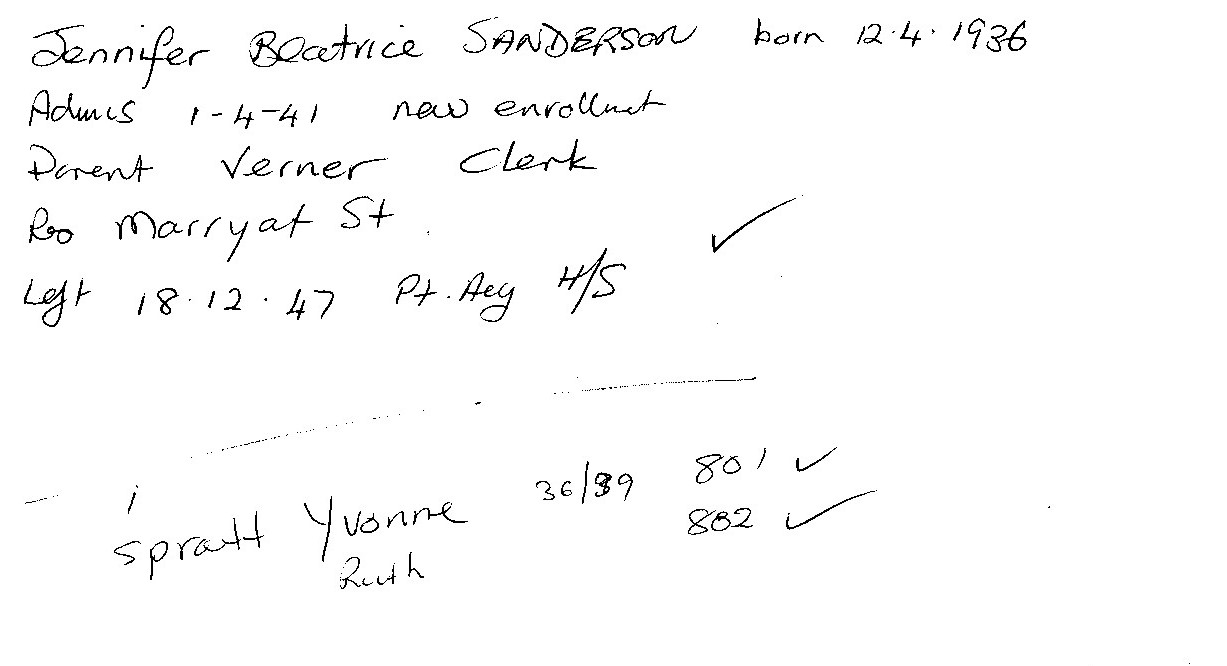 Jennifer Beatrice SANDERSON born 12.4.1936
Admis 1-4-41 new enrollmet
Parent Verner Clerk
Res Marryat St.
Left 18.12.47 Pt. Aeg H/S
801
Spratt Yvonne 36/39
802
Ruth